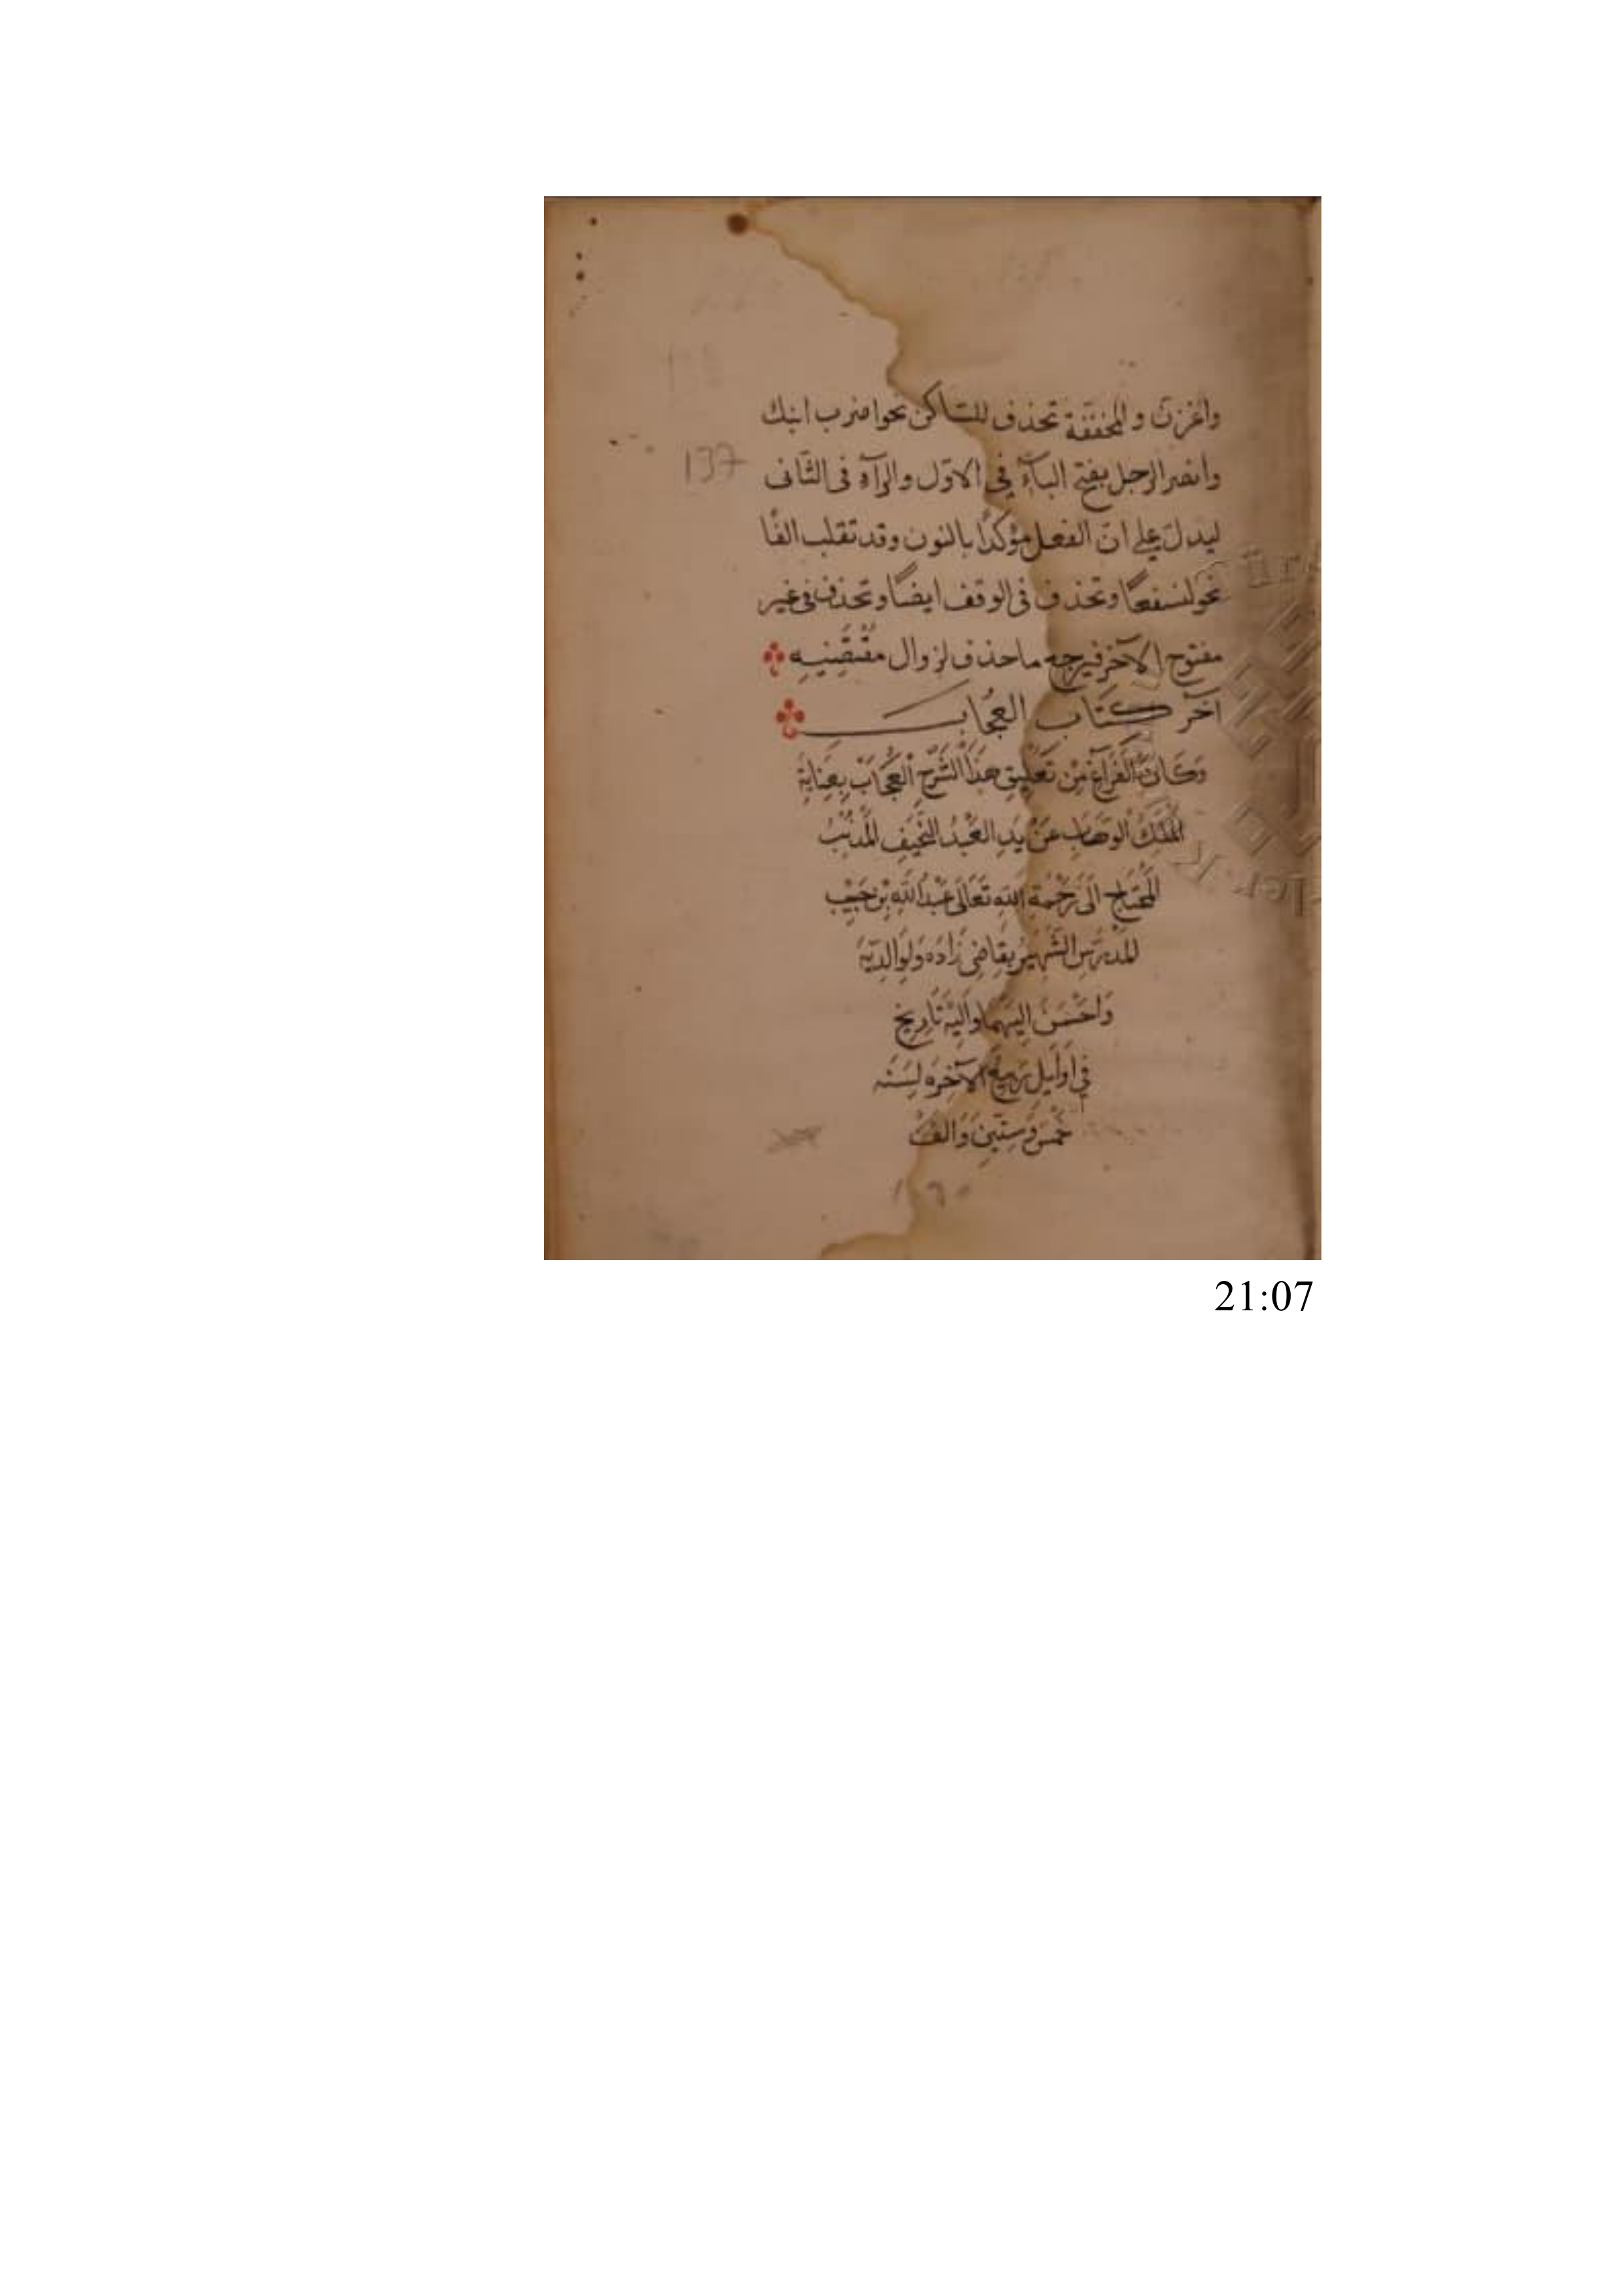 واغزنّ والمخففة تحذف للسّاكن نحو اضرب ابنك
وانصر الرجل بفتح الباء فى الاوّل والرآء فى الثّانى
137
ليدلّ على انّ الفعل مؤكّدا بالنون وقد تقلب الفًا
نحو لنسفعًا وتحذف فى الوقف ايضًا وتحذف فى غير
مفتوح الآخر فيرجع ما حذف لزوال مقتضيه
آخر كتاب العجاب
وكان الفراغ من تعليق هذا الشّرح العجاب بعناية
الملك الوهاب عن يد العبد النّحيف المذنب
المحتاج الى رحمة الله تعالى عبد الله بن حبيب
المدرس الشّهير بقاضى زاده ولوالديه
واحسن اليهما واليه تاريخ
فى اوايل ربيع الآخره لسنه
خمس وستّين والف
١٠٦٥
21:07